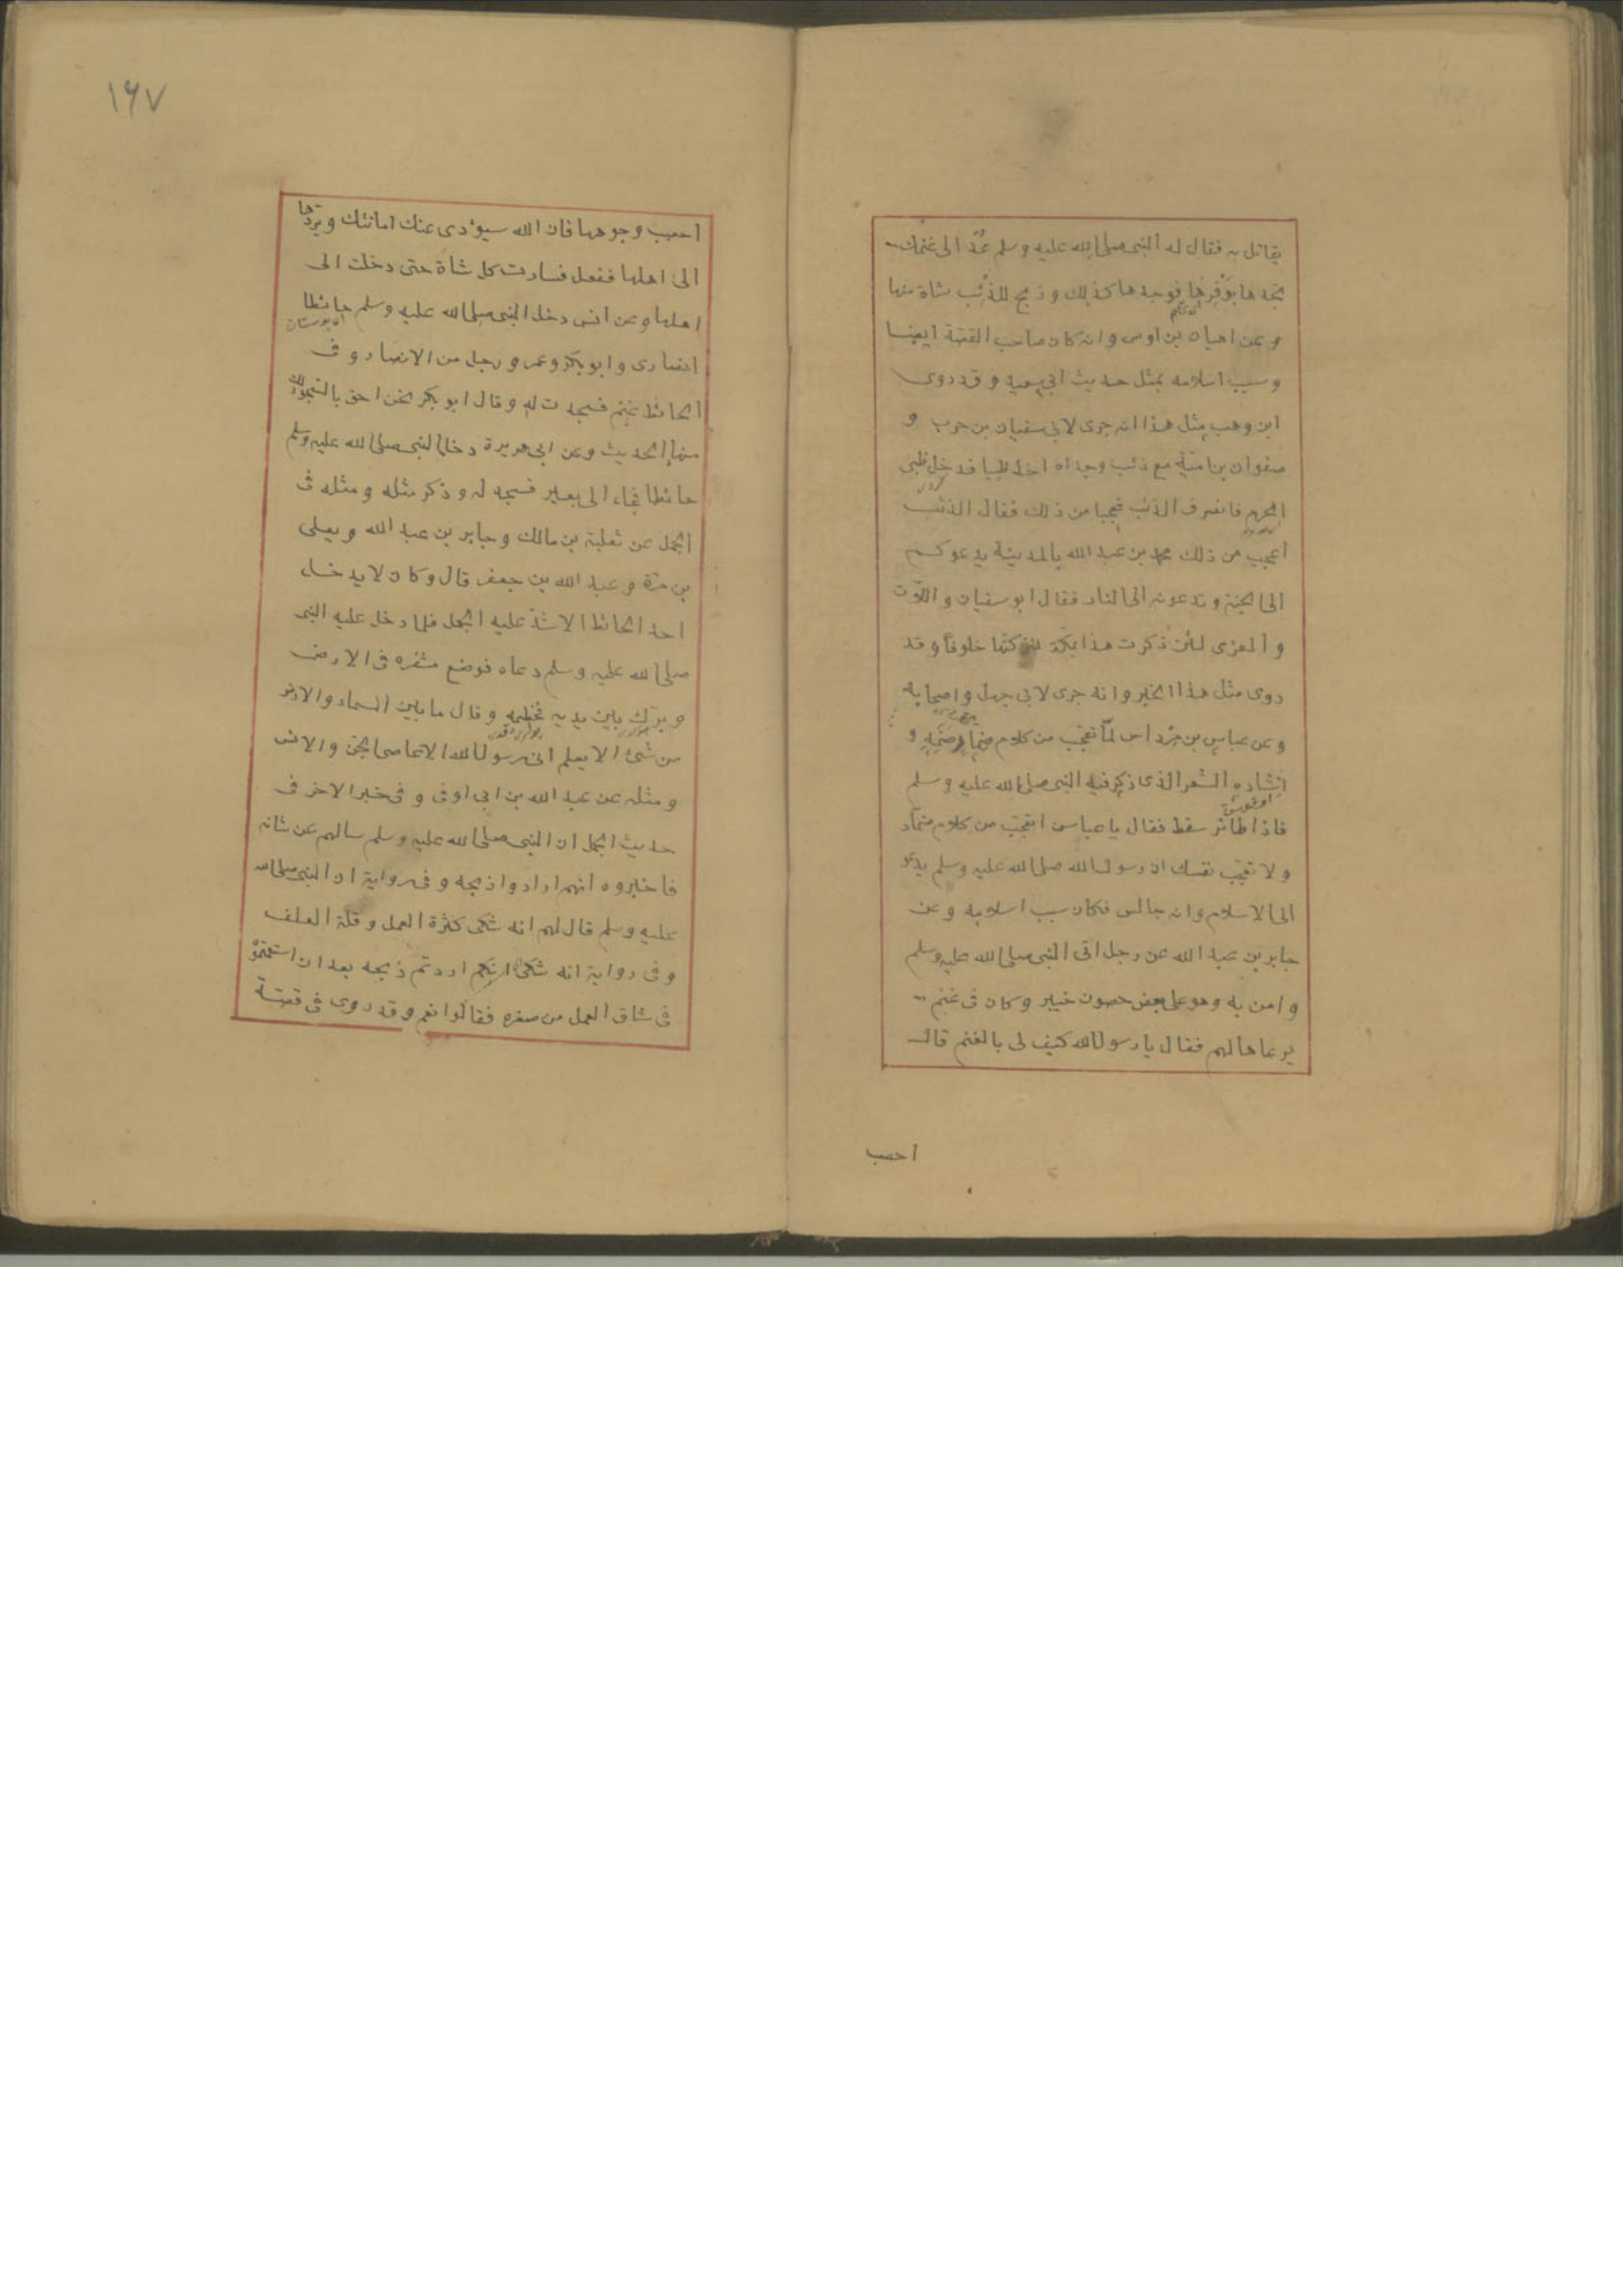 يقاتل به فقال له النبى صلى الله عليه وسلم عُدْ الى غنمك
تجدها بوَفرِها فوجدها كذلك وذبح للذئب شاة منها
وعن اهبان بن اوس وانه كان صاحب القصة ايضا
وسبب اسلامه بمثل حديث ابي سعيد وقد روى
ابن وهب مثل هذا انه جرى لابي سفيان بن حرب و
صفوان بن امية مع ذئب وجداه اخذ ظبيا فدخل ظبى
الحرم فانصرف الذئب فعجبا من ذلك فقال الذئب
اعجب من ذلك محمد بن عبد الله بالمدينة يدعوكم
الى الجنة وتدعونه الى النار فقال ابو سفيان واللات
والعزى لئن ذكرت هذا بمكة لتتركنّها خلوفًا وقد
روى مثل هذا الخبر وانه جرى لابي جهل واصحابه
وعن عباس بن مرداس لمّا تعجّب من كلام ضِمَار صنَمِهِ و
انشاده الشعر الذى ذكر فيه النبى صلى الله عليه وسلم
فاذا طائر سقط فقال يا عباس اتعجب من كلام ضمار
ولا تعجب نفسك ان رسول الله صلى الله عليه وسلم يدعو
الى الاسلام وانه جالس فكان سبب اسلامه وعن
جابر بن عبد الله عن رجل اتى النبى صلى الله عليه وسلم
وامن به وهو على بعض حصون خيبر وكان فى غنم
يرعاها لهم فقال يا رسول الله كيف لى بالغنم قال
احصب
١٦٧
احصب وجوهها فان الله سيؤدى عنك امانتك ويردّها
الى اهلها ففعل فسارت كل شاة حتى دخلت الى
اهلها وعن انس دخل النبى صلى الله عليه وسلم حائط
اى بوستان
انصارى وابو بكر وعمر ورجل من الانصار وفى
الحائط غنم فسجدت له وقال ابو بكر نحن احق بالسجود لك
منها الحديث وعن ابى هريرة دخل النبى صلى الله عليه وسلم
حائطا فجاء الى بعير فسجد له وذكر مثله ومثله فى
الجمل عن ثعلبة بن مالك وجابر بن عبد الله ويعلى
بن مرّة وعبد الله بن جعفر قال وكان لا يدخل
احد الحائط الا شدّ عليه الجمل فلما دخل عليه النبى
صلى الله عليه وسلم دعاه فوضع مشفره فى الارض
وبرك بين يديه فخطمه وقال ما بين السماء والارض
من شئ الا يعلم انى رسول الله الا عاصى الجن والانس
ومثله عن عبد الله بن ابي اوفى وفى خبر الاخر فى
حديث الجمل ان النبى صلى الله عليه وسلم سالهم عن شانه
فاخبروه انهم ارادوا ذبحه وفى رواية ان النبى صلى الله
عليه وسلم قال لهم انه شكى كثرة العمل وقلة العلف
وفى رواية انه شكى انكم اردتم ذبحه بعد ان استعملتموه
فى شاق العمل من صغره فقالوا نعم وقد روى فى قصة